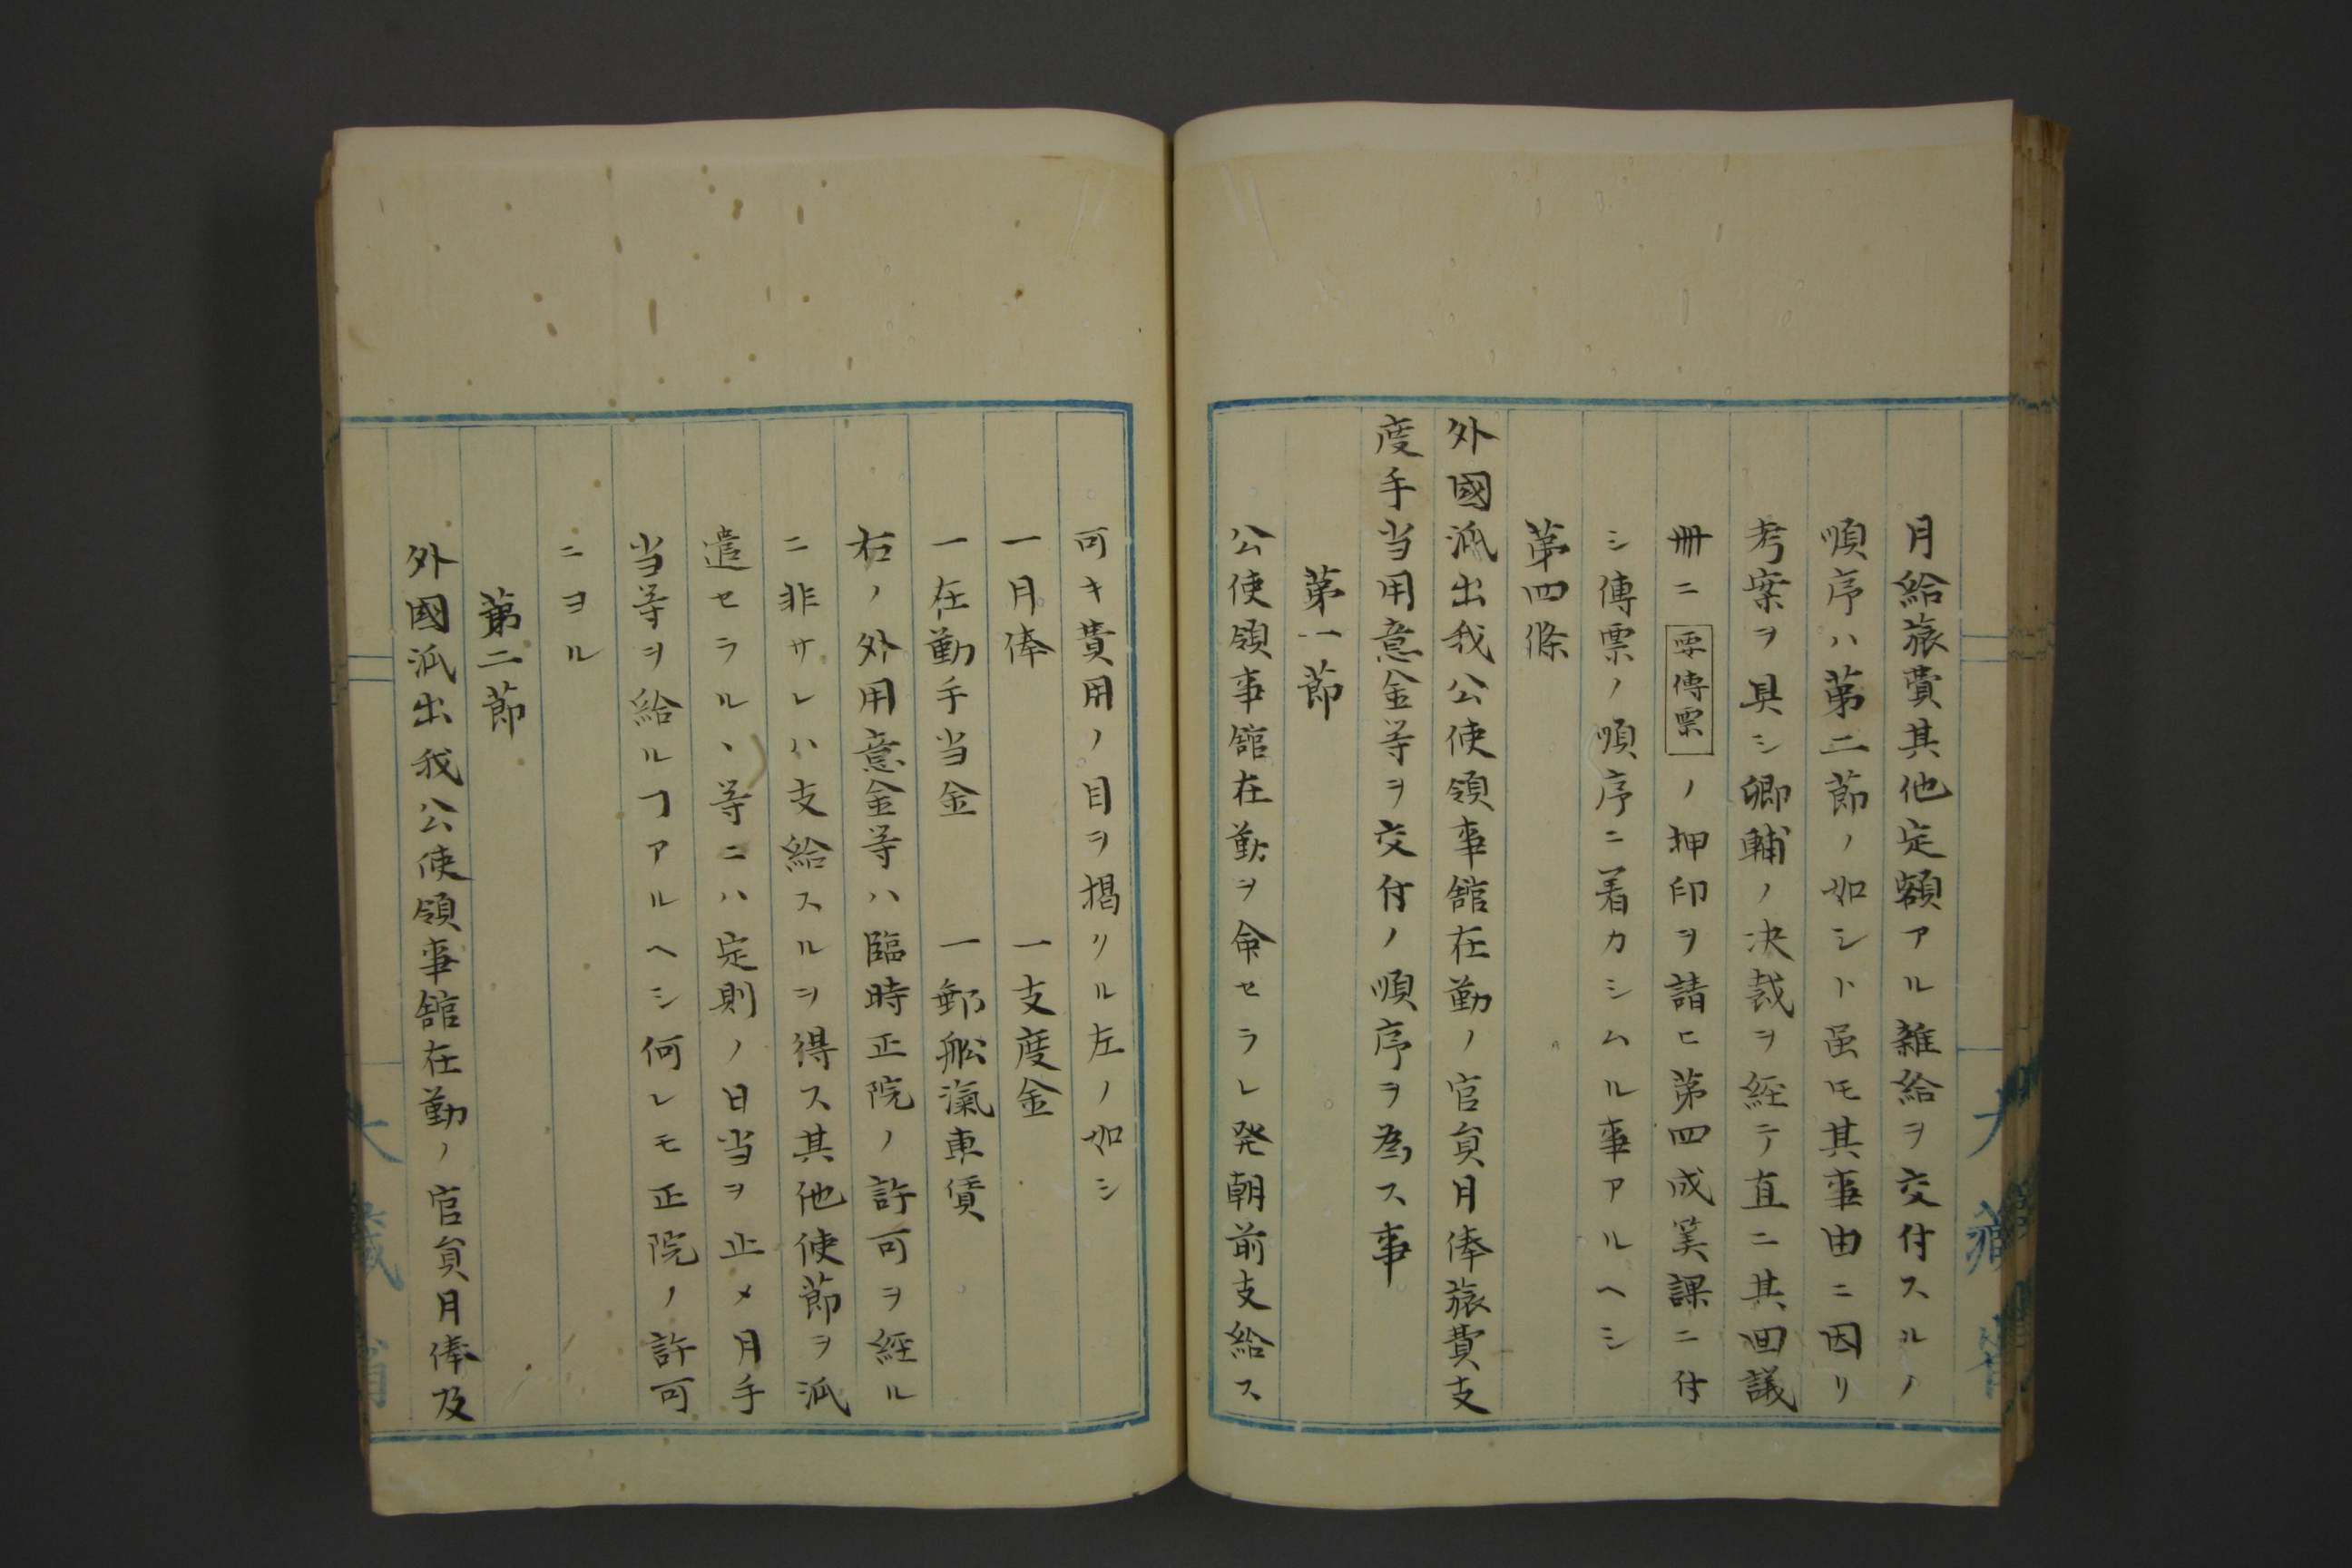 月給旅費其他定額アル雑給ヲ交付スルノ
順序ハ第二節ノ如シト虽モ其事由ニ因リ
考案ヲ具シ卿輔ノ决裁ヲ経テ直ニ其回議
冊ニ要傳票ノ押印ヲ請ヒ第四成美課ニ付
シ傳票ノ順序ニ着カシムル事アルヘシ
第四條
外國派出我公使領事館在勤ノ官員月俸旅費支
度手当用意金等ヲ交付ノ順序ヲ為ス事
第一節
公使領事館在勤ヲ命セラレ発朝前支給ス
可キ費用ノ目ヲ掲リル左ノ如シ
一月俸 一支度金
一在勤手当金 一郵舩滊車賃
右ノ外用意金等ハ臨時正院ノ許可ヲ経ル
ニ非サレハ支給スルヲ得ス其他使節ヲ派
遣セラルヽ等ニハ定則ノ日当ヲ止メ月手
当等ヲ給ルヿアルヘシ何レモ正院ノ許可
ニヨル
第二節
外國派出我公使領事館在勤ノ官員月俸及
大藏省
大藏省